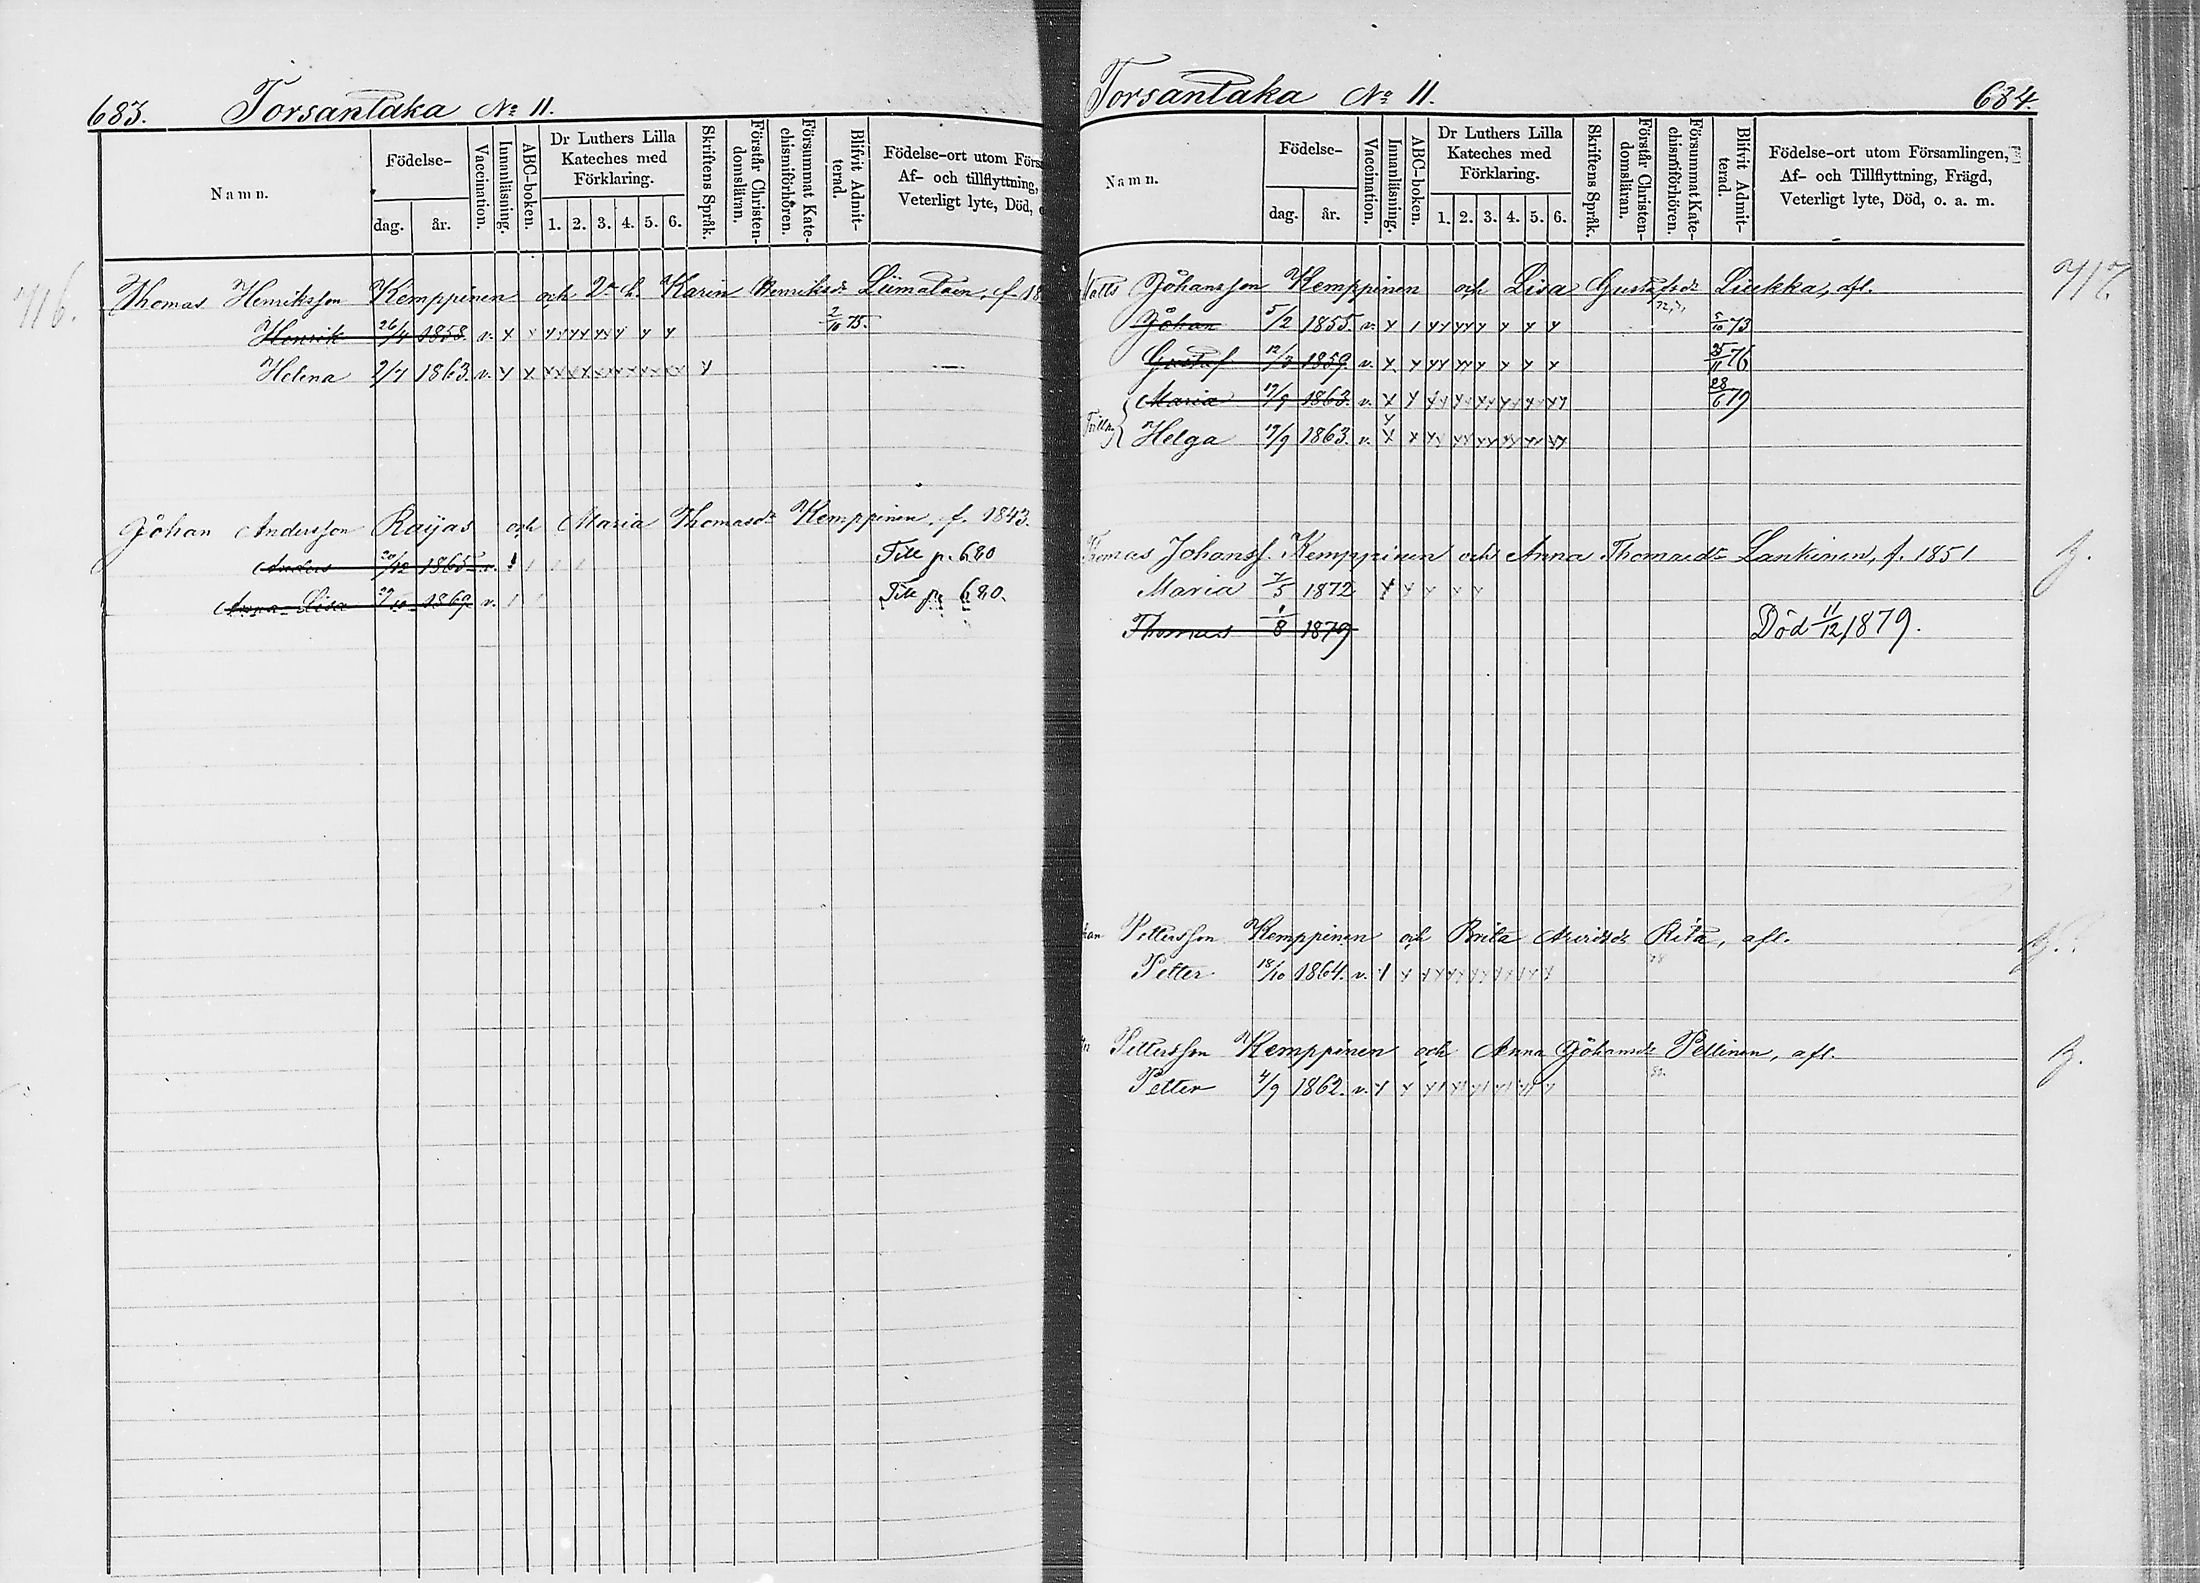 683. Torsantaka No 11.
Namn.
Födelse-
dag.
år.
Vaccination.
Innanläsning.
ABC-boken.
Dr Luthers Lilla
Kateches med
Förklaring.
1. 2. 3. 4. 5. 6.
Skriftens Språk.
Förstår Christen-
domsläran.
Försummat Kate-
chismiförhören.
Blifvit Admit-
terad.
Födelse-ort utom Förs
Af- och tillflyttning,
Veterligt lyte, Död,
716.
Thomas Henriksson Kemppinen och 2:a h. Karin Henriksdr Liimatain, f. 18
Henrik 26/4 1858. v. 2/10 75.
Helena 2/7 1863. v.
Johan Andersson Raijas och Maria Thomasdr Kemppinen, f. 1843.
Anders 20/12 1865 v. Till p. 680
Anna Lisa 29/10 1869 v. Till p. 680.
Torsantaka No 11. 684.
Namn.
Födelse-
dag.
år.
Vaccination.
Innanläsning.
ABC-boken.
Dr Luthers Lilla
Kateches med
Förklaring.
1. 2. 3. 4. 5. 6.
Skriftens Språk.
Förstår Christen-
domsläran.
Försummat Kate-
chismiförhören.
Blifvit Admit-
terad.
Födelse-ort utom Församlingen,
Af- och Tillflyttning, Frägd,
Veterligt lyte, Död, o. a. m.
Matts Johansson Kemppinen och Lisa Gustafsdr Liukka, afl. 717.
Johan 5/2 1855. v. 5/10 73
Gustaf 12/3 1859. v. 76
Maria 17/9 1863. v. 28/6 79
Helga 17/9 1863. v.
Thomas Johanss. Kemppinen och Anna Thomasdr Lankinen, f. 1851
Maria 7/5 1872
Thomas 1/8 1879 Död 11/12 1879.
Pettersson Kemppinen och Brita Arvidsdr Rita, afl.
Petter 18/10 1864. v.
Pettersson Kemppinen och Anna Johansdr Pellinen, afl.
Petter 4/9 1862. v.